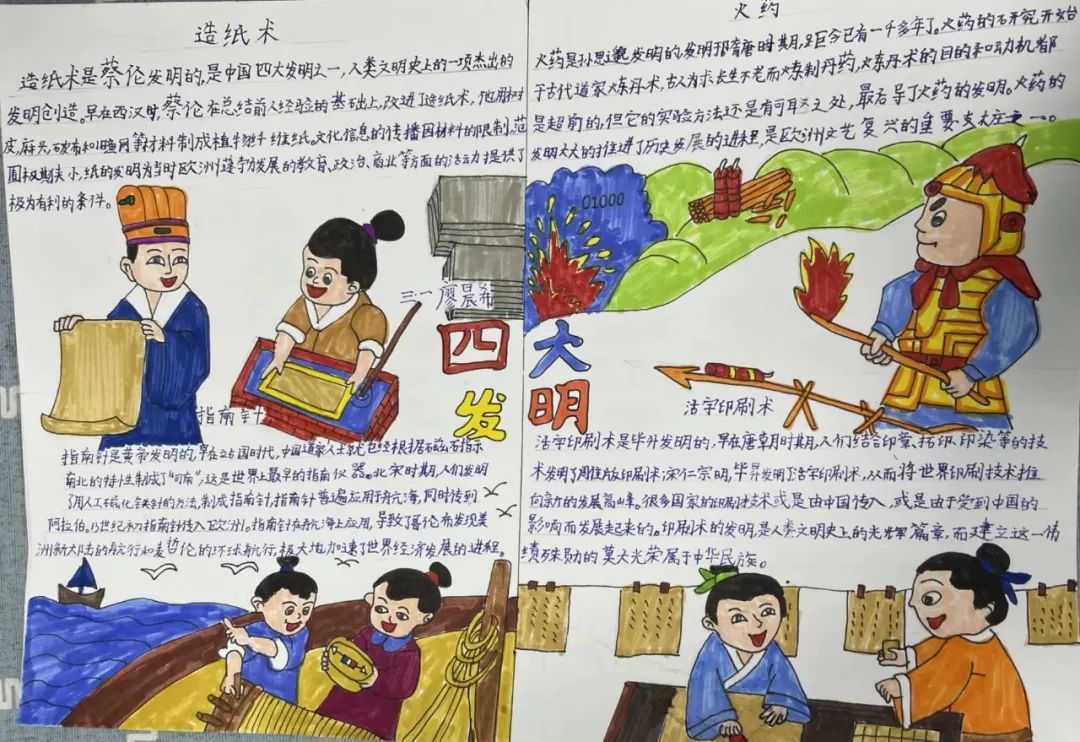 造纸术
造纸术是蔡伦发明的,是中国四大发明之一,人类文明史上的一项杰出的
发明创造。早在西汉时,蔡伦在总结前人经验的基础上,改进了造纸术,他用树
皮,麻头,破布和旧鱼网等材料制成植物纤维纸。文化信息的传播因材料的限制,范
围极其狭小,纸的发明为当时欧洲蓬勃发展的教育、政治、商业等方面的活动提供了
极为有利的条件。
火药
火药是孙思邈发明的,发明于隋唐时期,距今已有一千多年了。火药的研究开始
于古代道家炼丹术,古人为求长生不老而炼制丹药,炼丹术的目的和动机都
是超前的,但它的实验方法还是有可取之处,最后导了火药的发明。火药的
发明大大的推进了历史发展的进程,是欧洲文艺复兴的重要支柱之一。
01000
三·一廖晨希
四大
发明
指南针
指南针是黄帝发明的,早在战国时代,中国道家人士就已经根据磁石指示
南北的特性制成了“司南”,这是世界上最早的指南仪器。北宋时期,人们发明
了用人工磁化铁针的方法,制成指南针,指南针普遍应用于航海,同时传到
阿拉伯。13世纪初指南针传入欧洲。指南针在航海上应用,导致了哥伦布发现美
洲新大陆的航行和麦哲伦的环球航行,极大地加速了世界经济发展的进程。
活字印刷术
活字印刷术是毕升发明的,早在唐朝时期,人们结合印章、拓印、印染等的技
术发明了雕版印刷术;宋仁宗明,毕升发明了活字印刷术,从而将世界印刷技术推
向新的发展高峰。很多国家的印刷技术或是由中国传入,或是由于受到中国的
影响而发展起来的。印刷术的发明,是人类文明史上的光辉篇章,而建立这一伟
绩殊勋的莫大光荣属于中华民族。